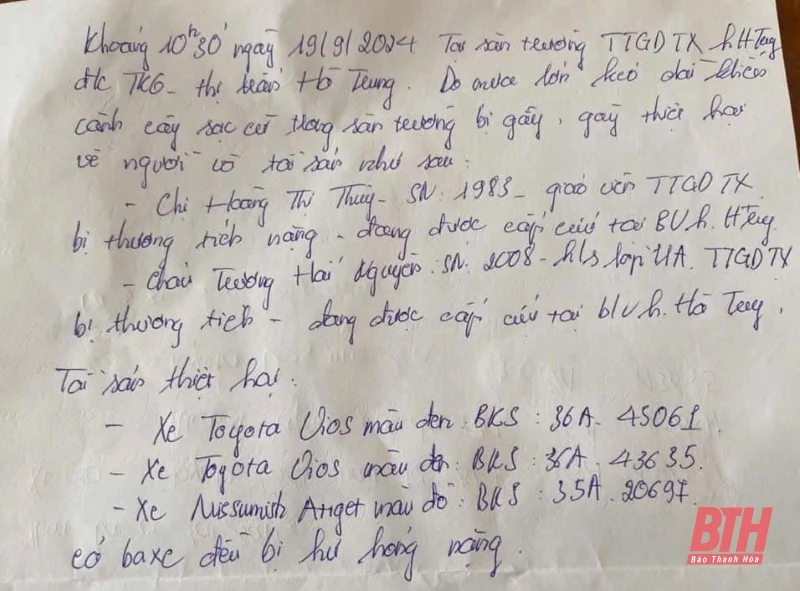 Khoảng 10h30' ngày 19/9/2024 Tại sân trường TTGDTX h HTrung
đ/c TK6 - thị trấn Hà Trung. Do mưa lớn kéo dài khiến
cành cây sạc cừ trong sân trường bị gẫy, gây thiệt hại
về người và tài sản như sau:
- Chị Hoàng Thị Thủy - SN: 1983 - giáo viên TTGDTX
bị thương tích nặng - đang được cấp cứu tại BV h. HTrung
- cháu Trương Hải Nguyên: SN: 2008 - h/s lớp 11A. TTGDTX
bị thương tích - đang được cấp cứu tại b/v h. Hà Trung.
Tài sản thiệt hại:
- Xe Toyota Vios màu đen: BKS: 36A. 45061.
- Xe Toyota Vios màu đen: BKS: 36A. 43635.
- Xe màu đỏ: BKS: 35A. 20697.
cả ba xe đều bị hư hỏng nặng.
BTH
Báo Thanh Hóa